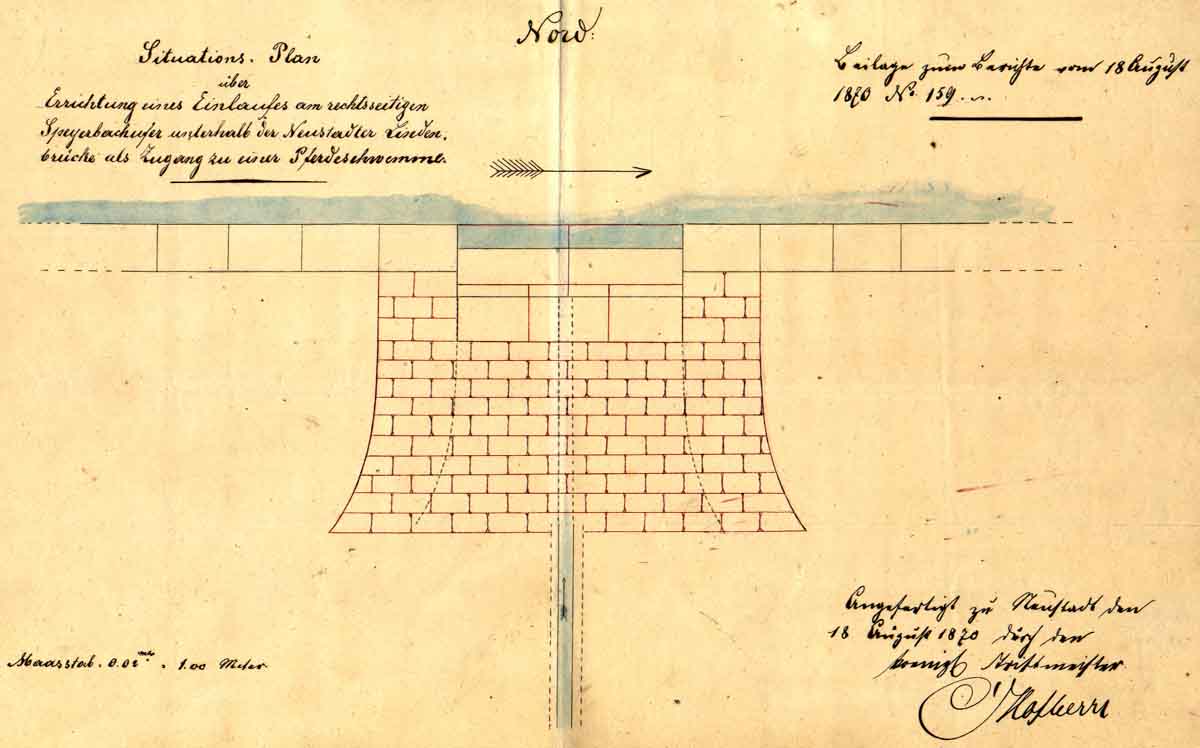 Nord:
Situations-Plan
über
Errichtung eines Einlaufes am rechtsseitigen
Speyerbachufer unterhalb der Neustadter Linden-
brücke als Zugang zu einer Pferdeschwemme.
Beilage zum Berichte vom 18 August
1870 No. 159.
Maasstab. 0.02 = 1.00 Meter.
Angefertigt zu Neustadt den
18 August 1870 durch den
koenigl. Triftmeister
Hofherr